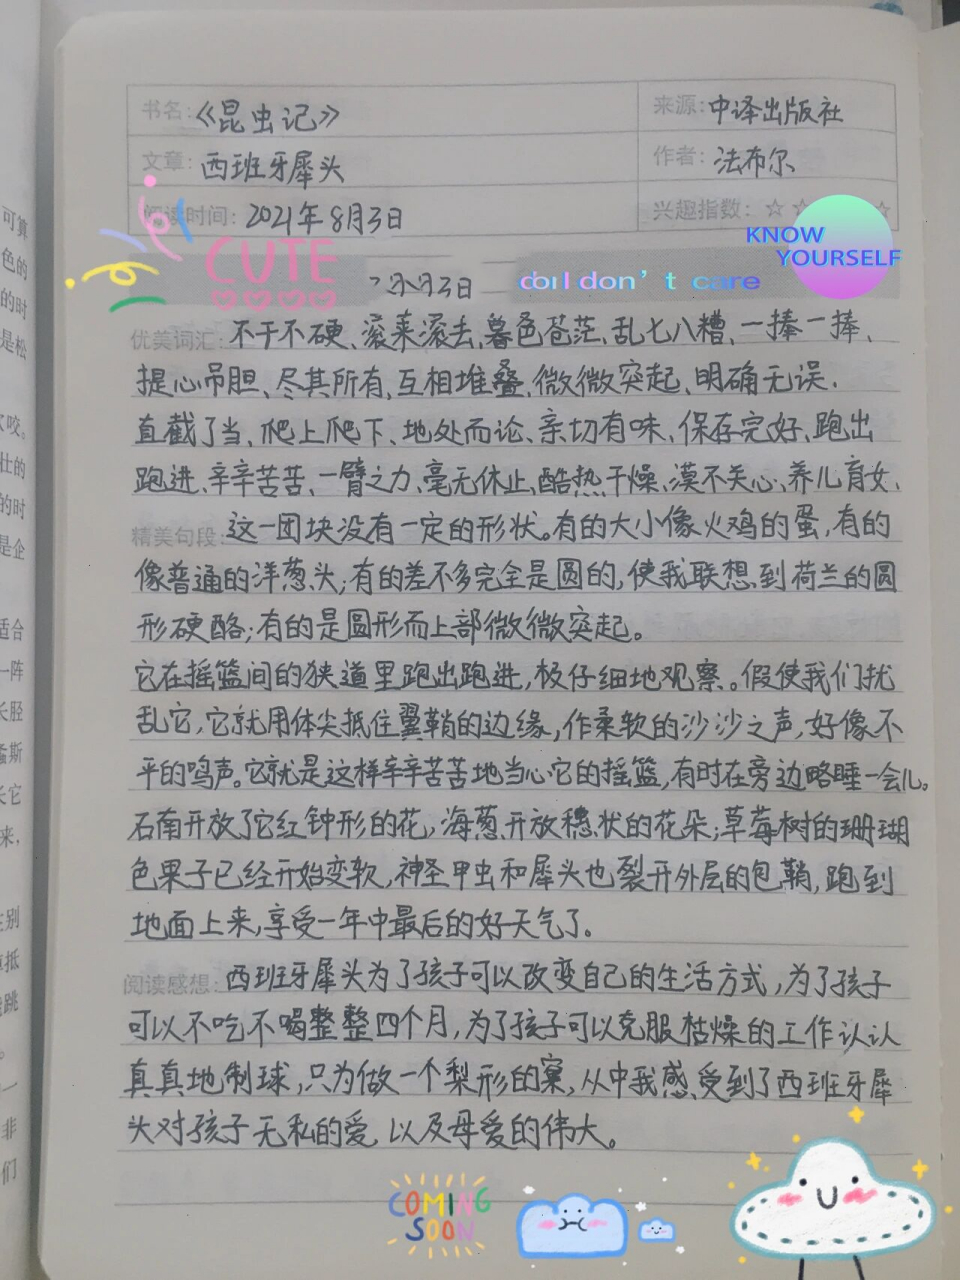 书名:《昆虫记》 来源:中译出版社
文章:西班牙犀头 作者:法布尔
阅读时间:2021年8月3日 兴趣指数:☆☆☆
KNOW
YOURSELF
CUTE
3日 don't care
优美词汇:不干不硬、滚来滚去、暮色苍茫、乱七八糟、一捧一捧、
提心吊胆、尽其所有、互相堆叠、微微突起、明确无误、
直截了当、爬上爬下、地处而论、亲切有味、保存完好、跑出
跑进、辛辛苦苦、一臂之力、毫无休止、酷热干燥、漠不关心、养儿育女、
精美句段:这一团块没有一定的形状。有的大小像火鸡的蛋,有的
像普通的洋葱头;有的差不多完全是圆的,使我联想到荷兰的圆
形硬酪;有的是圆形而上部微微突起。
它在摇篮间的狭道里跑出跑进,极仔细地观察。假使我们扰
乱它,它就用体尖抵住翼鞘的边缘,作柔软的沙沙之声,好像不
平的鸣声。它就是这样辛辛苦苦地当心它的摇篮,有时在旁边略睡一会儿。
石南开放了它红钟形的花,海葱开放穗状的花朵;草莓树的珊瑚
色果子已经开始变软,神圣甲虫和犀头也裂开外层的包鞘,跑到
地面上来,享受一年中最后的好天气了。
阅读感想:西班牙犀头为了孩子可以改变自己的生活方式,为了孩子
可以不吃不喝整整四个月,为了孩子可以克服枯燥的工作认认
真真地制球,只为做一个梨形的窠,从中我感受到了西班牙犀
头对孩子无私的爱以及母爱的伟大。
COMING
SOON